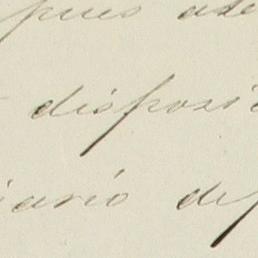 pues ade
disposi
iario de